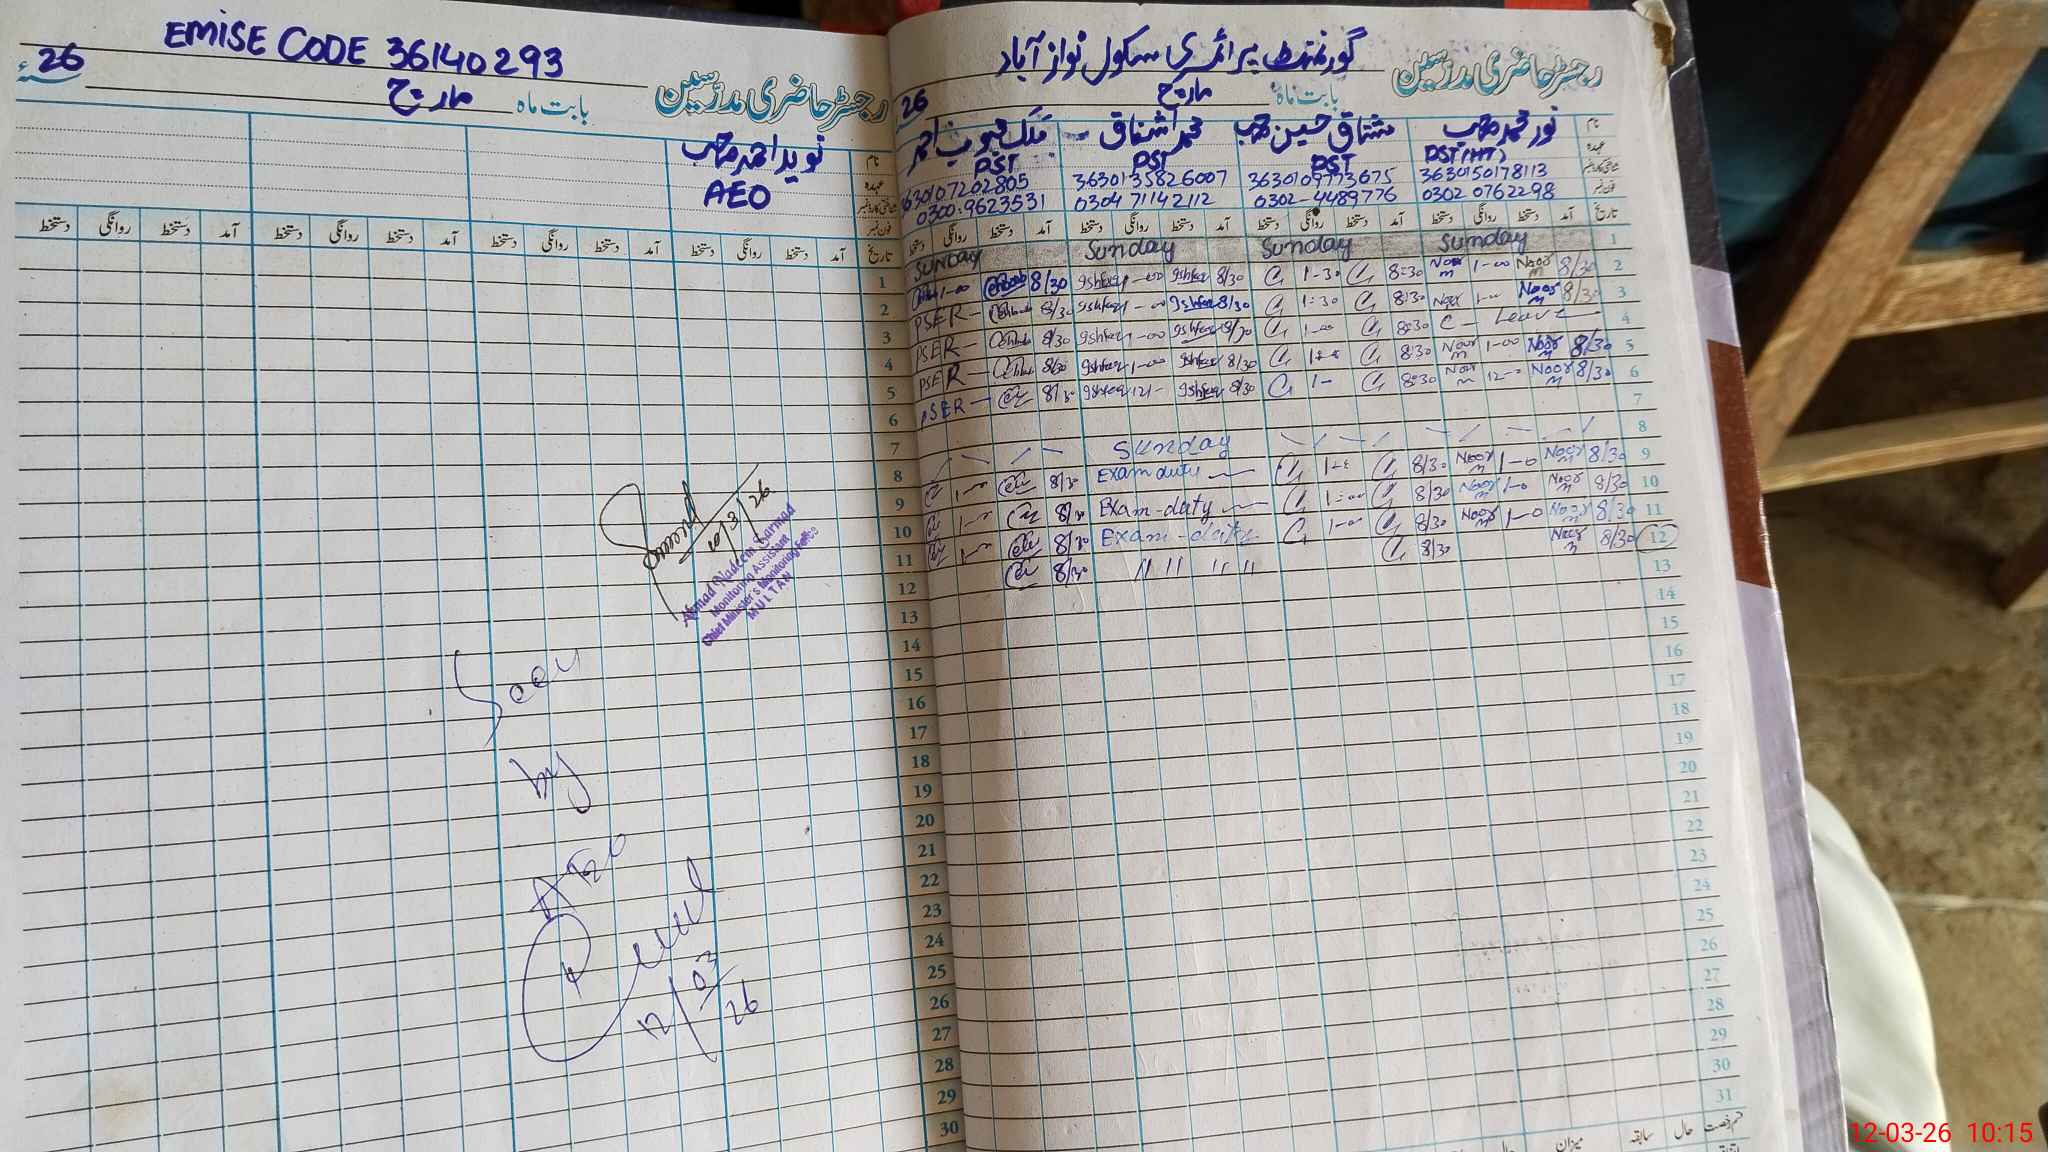 EMISE CODE 36140293
26
رجسٹر حاضری مدرسین
بابت ماہ مارچ
نوید احمد صاحب
AEO
نام
عہدہ
تاریخ آمد دستخط روانگی دستخط آمد دستخط روانگی دستخط آمد دستخط روانگی دستخط آمد دستخط روانگی دستخط
1
2
3
4
5
6
7
8
9
10
11
12
13
14
15
16
17
18
19
20
21
22
23
24
25
26
27
28
29
30
10/3/26
Ahmad Nadeem Sarmad
Monitoring Assistant
Chief Minister's Monitoring Force
MULTAN
Seen
by
AEO
12/03/26
گورنمنٹ پرائمری سکول نواز آباد
رجسٹر حاضری مدرسین
بابت ماہ مارچ
26
نام نور محمد صاحب مشتاق حسین صاحب محمد اشفاق ملک محبوب احمد
عہدہ PST(HT) PST PST PST
3630150178113 3630109773675 3630135826007 3630107202805
0302 0762298 0302-4489776 0304 71142112 0300-9623531
تاریخ آمد دستخط روانگی دستخط آمد دستخط روانگی دستخط آمد دستخط روانگی دستخط آمد دستخط روانگی دستخط
1 Sunday Sunday Sunday Sunday
2 8/30 Noor m 1-00 Noor m 8:30 1-30 8/30 Ishfaq 1-00 Ishfaq 8/30 1-00
3 8/30 Noor m 1-0 Noor 8:30 1:30 8/30 Ishfaq 1-00 Ishfaq 8/30 PSER
4 C- Leave 8:30 1-00 8/30 Ishfaq 1-00 Ishfaq 8/30 PSER
5 8/30 Noor m 1-00 Noor m 8:30 8/30 Ishfaq 1-00 Ishfaq 8/30 PSER
6 8/30 Noor m 12-0 Noor m 8:30 1- 8/30 Ishfaq 12- Ishfaq 8/30 PSER
7
8 Sunday
9 8/30 Noor m 1-0 Noor m 8/30 Exam duty 8/30
10 8/30 Noor m 1-0 Noor m 8/30 1:00 Exam-duty 8/30
11 8/30 Noor m 1-0 Noor m 8/30 1-00 Exam-duty 8/30
12 8/30 Noor m 8/30 11 11 11 11 8/30
13
14
15
16
17
18
19
20
21
22
23
24
25
26
27
28
29
30
31
میزان سابقہ حال
12-03-26 10:15